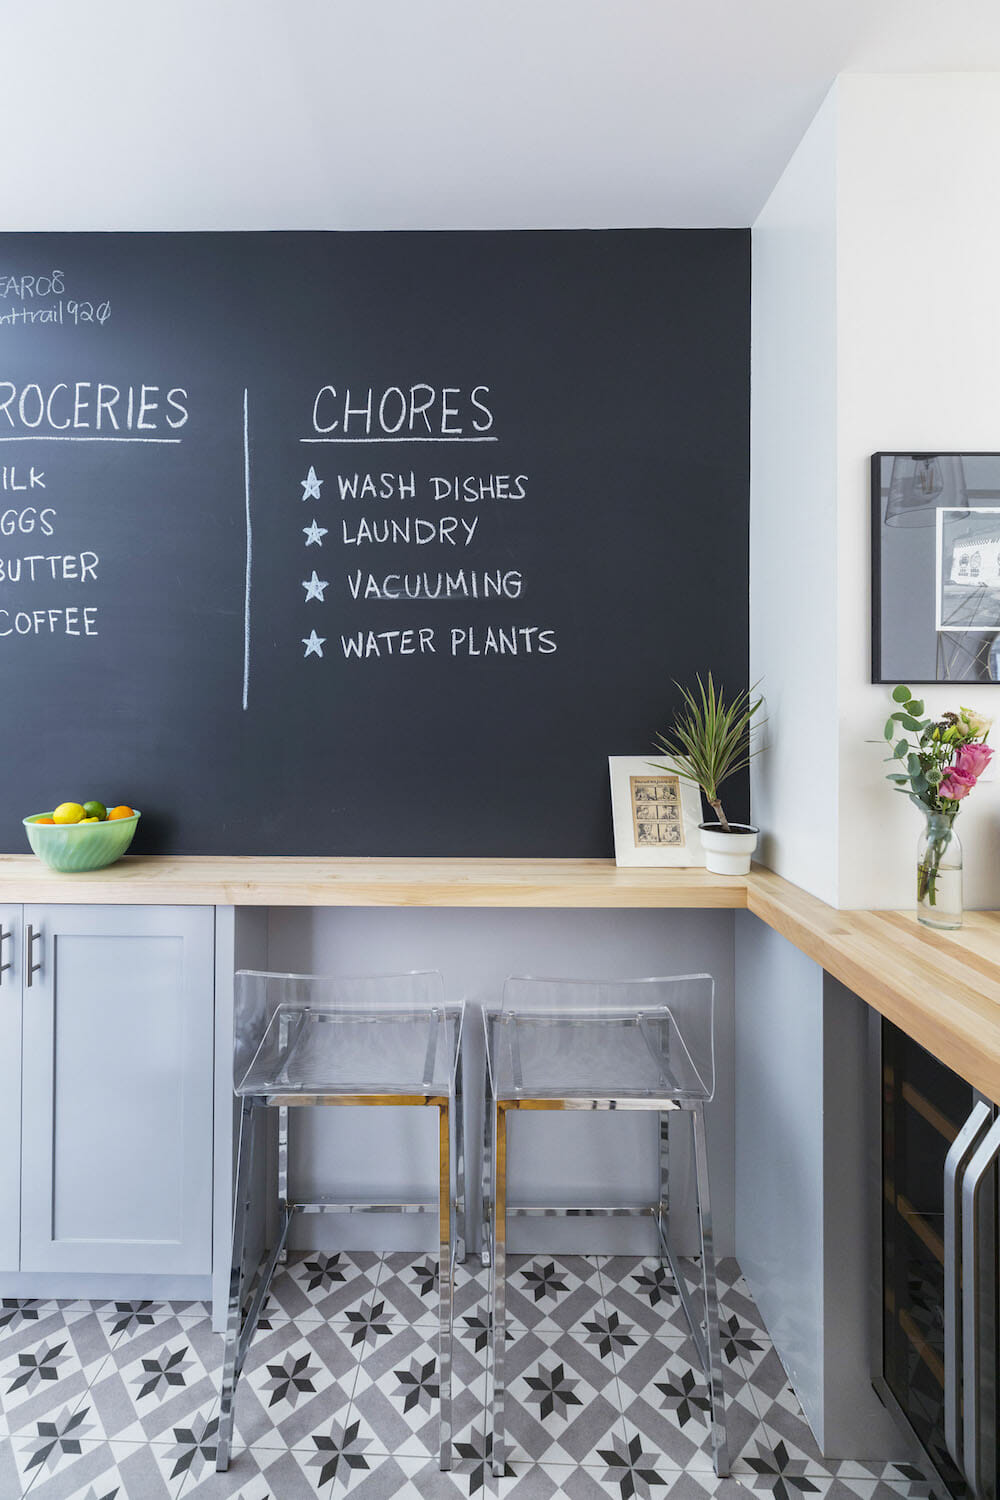 EAR08
nttrail920
ROCERIES
ILK
GGS
BUTTER
COFFEE
CHORES
WASH DISHES
LAUNDRY
VACUUMING
WATER PLANTS